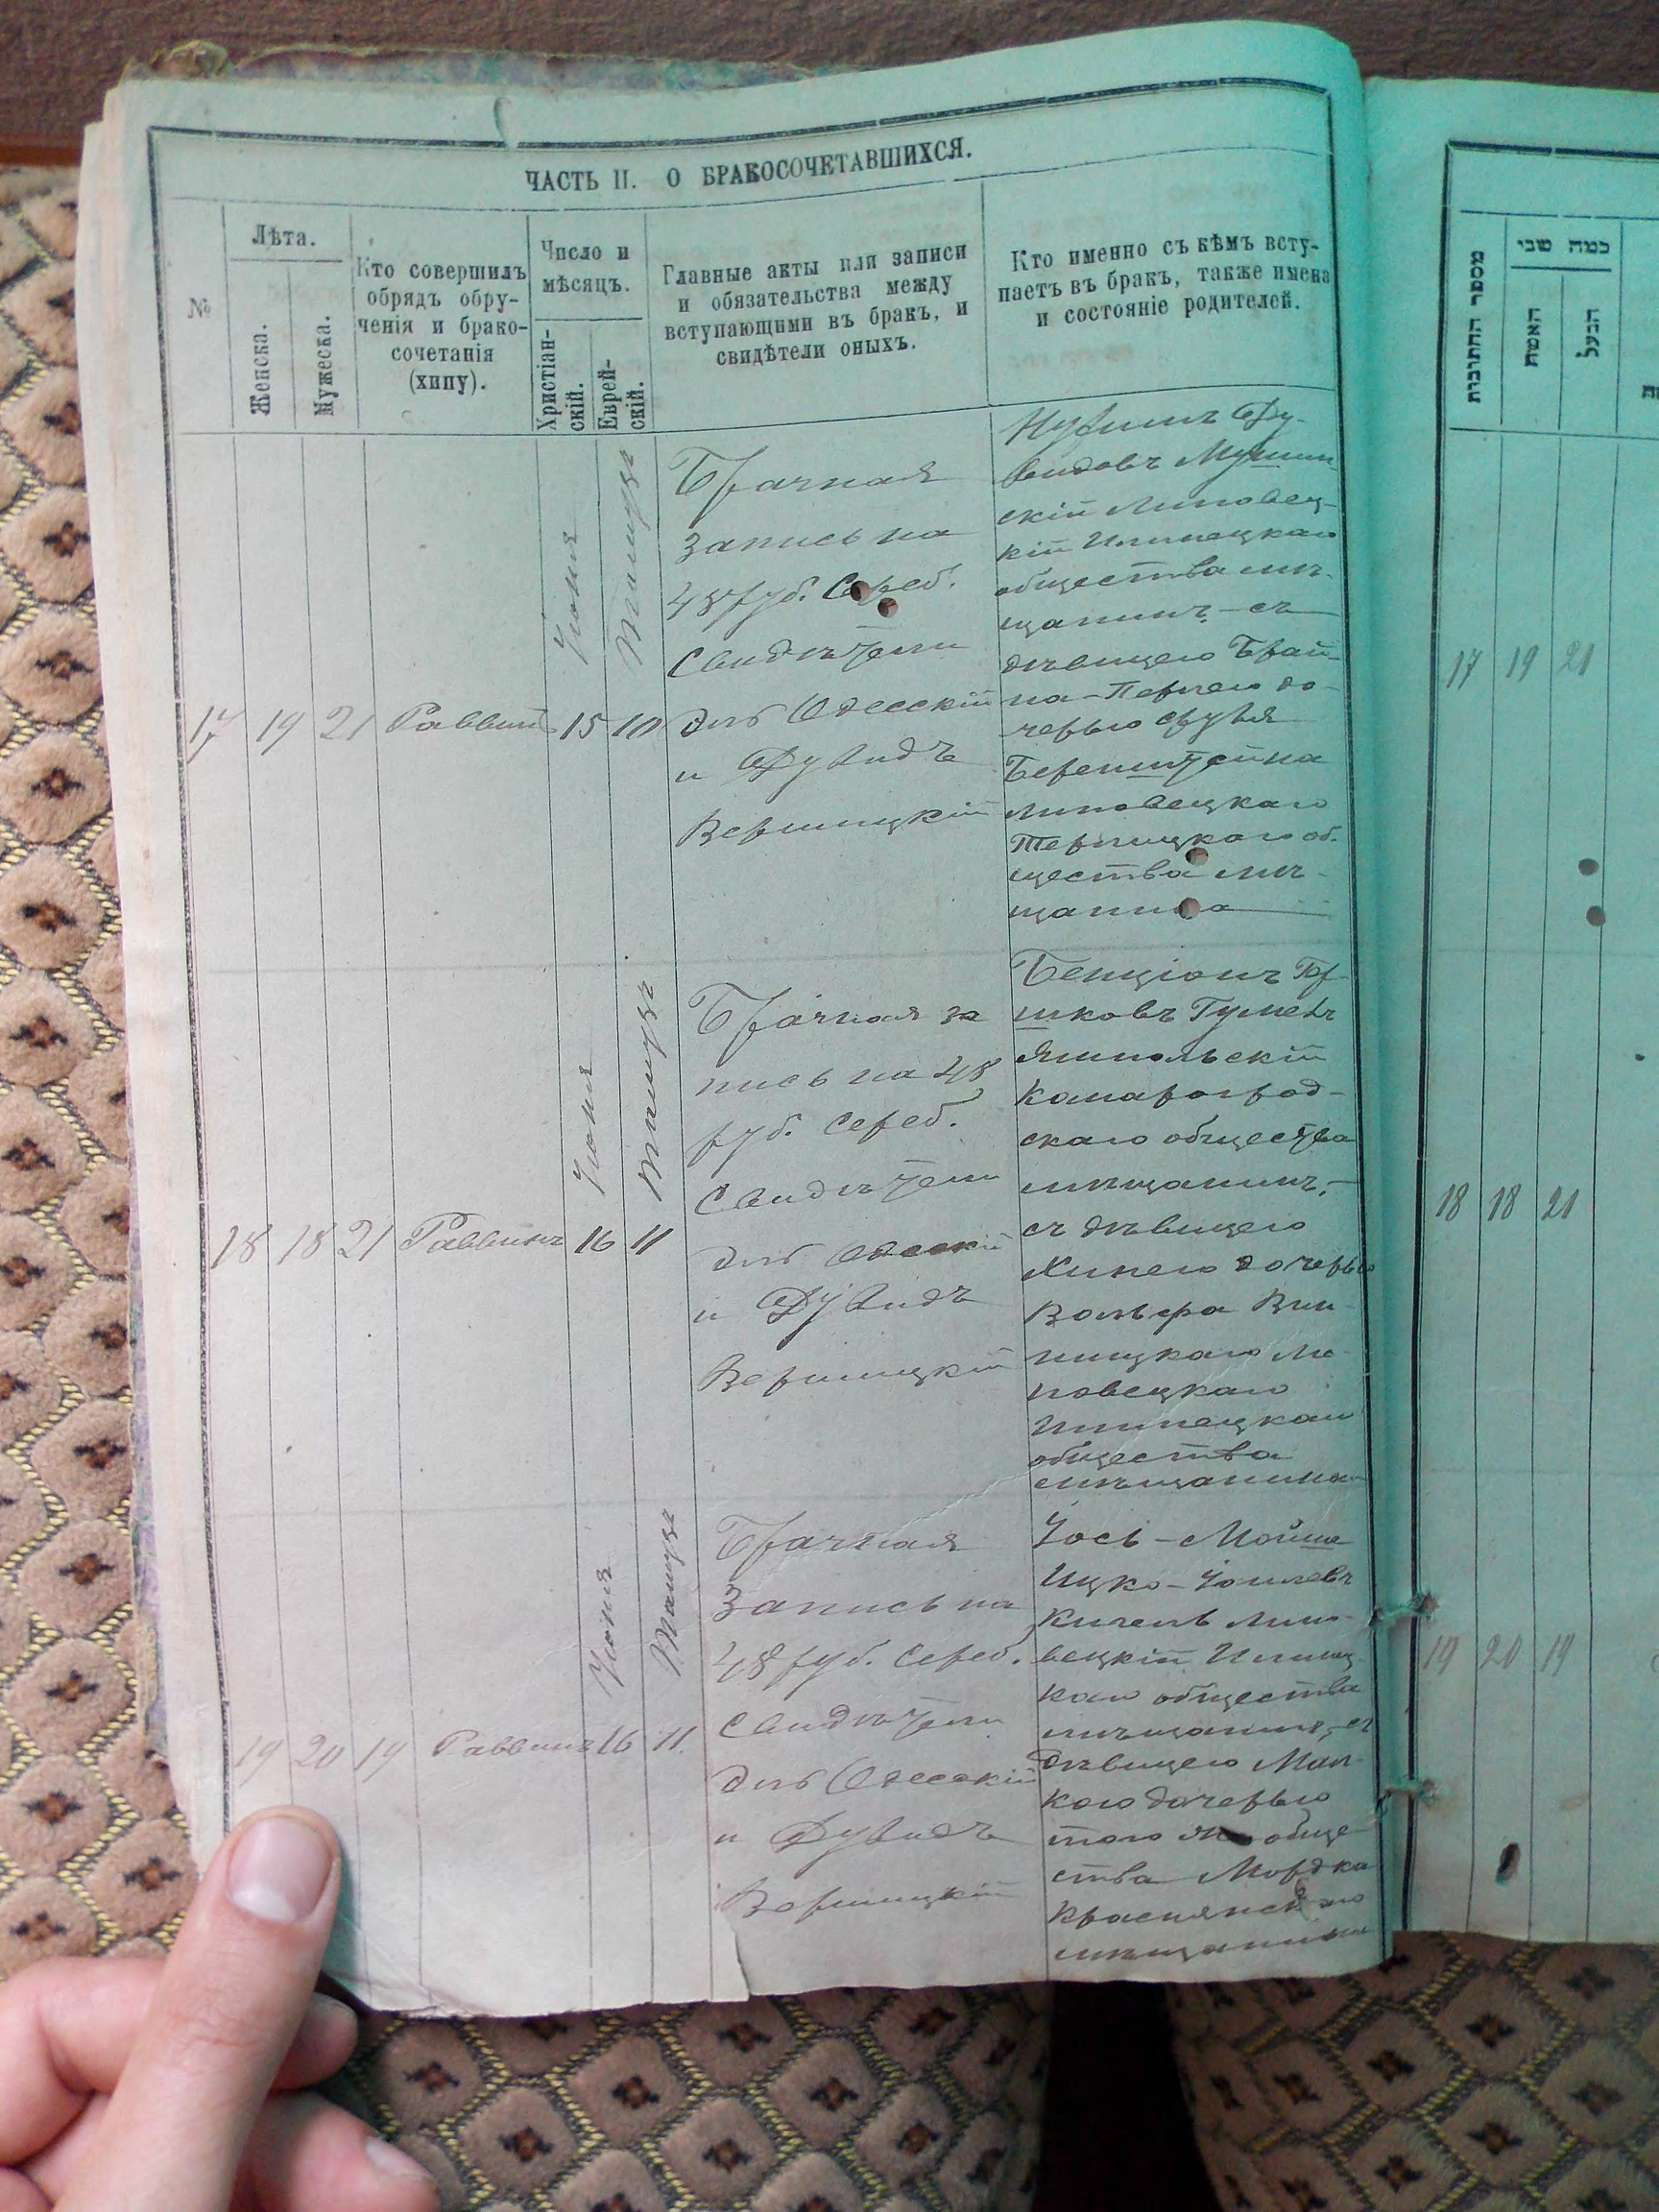 ЧАСТЬ II. О БРАКОСОЧЕТАВШИХСЯ.
№
Лѣта.
Женска.
Мужеска.
Кто совершилъ
обрядъ обру-
ченія и брако-
сочетанія
(хипу).
Число и
мѣсяцъ.
Христіан-
скій.
Еврей-
скій.
Главные акты или записи
и обязательства между
вступающими въ бракъ, и
свидѣтели оныхъ.
Кто именно съ кѣмъ всту-
паетъ въ бракъ, также имена
и состояніе родителей.
17
19
21
Раввинъ
Іюня
15
Тамузъ
10
Брачная
запись на
48 руб. Сереб.
Свидѣтели
Одесскій
и Дувидъ
Вершицкій
Ду-
видовъ
скій Липовец-
кій Илинецкаго
общества мѣ-
щанинъ - съ
дѣвицею Брай-
на-Перлею до-
черью
Беренштейна
Липовецкаго
об-
щества мѣ-
щанина
18
18
21
Раввинъ
Іюня
16
Тамузъ
11
Брачная за
пись на 48
руб. Сереб.
Свидѣтели
Одесскій
и Дувидъ
Вершицкій
Бенціонъ Гер-
шковъ
Ямпольскій
Комаргрод-
скаго общества
мѣщанинъ, -
съ дѣвицею
Хинею дочерью
Вольфа Вин-
ницкаго Ли-
повецкаго
Илинецкаго
общества
мѣщанина
19
20
19
Раввинъ
Іюня
16
Тамузъ
11.
Брачная
Запись на
48 руб. Сереб.
Свидѣтели
Одесскій
и Дувидъ
Вершицкій
Іось-Мойше
Ицко-
Липо-
вецкій Илинец-
каго общества
мѣщанинъ, съ
дѣвицею Мал-
кою дочерью
того же обще-
ства Мордка
Краснянскаго
мѣщанина
מספר החתונות
כמה שני
האשה
הבעל
17 19 21
18 18 21
19 20 19